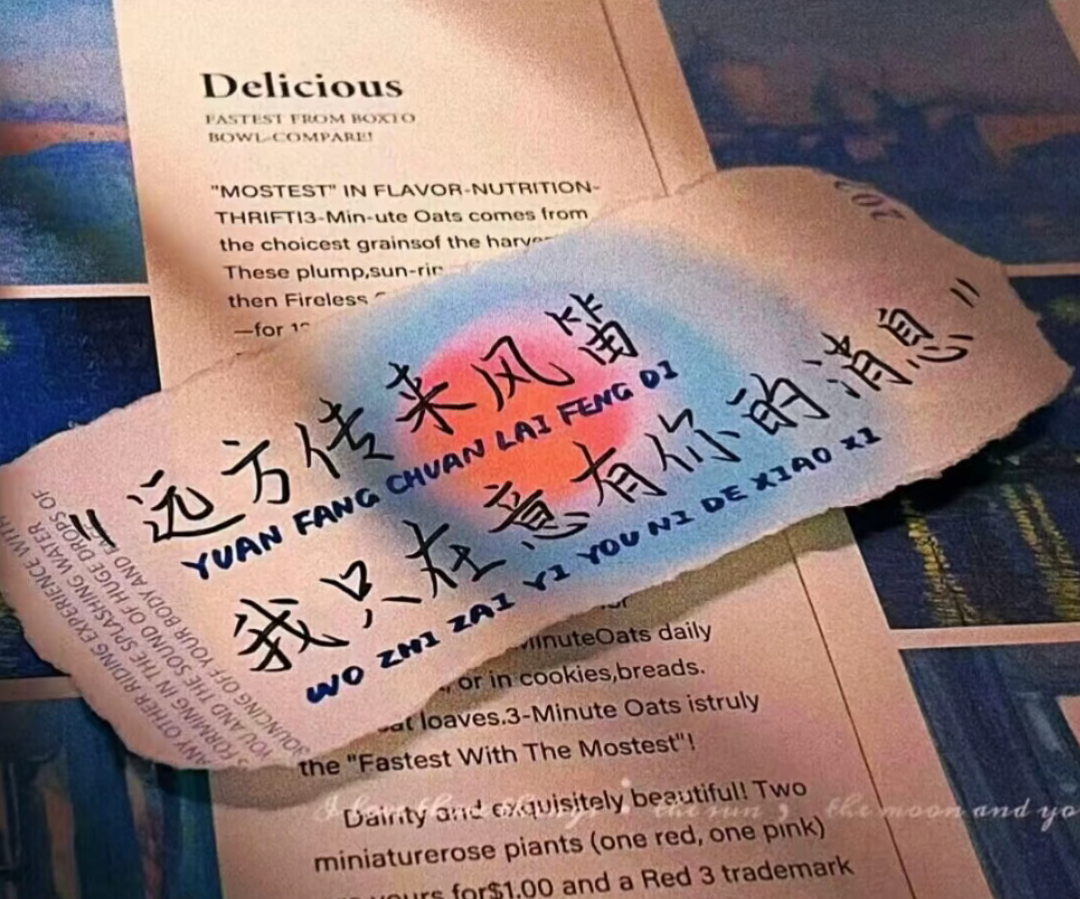 Delicious
FASTEST FROM BOXTO
BOWL-COMPARE!
"MOSTEST" IN FLAVOR-NUTRITION-
THRIFTI3-Min-ute Oats comes from
the choicest grainsof the
These plump,
then Fireless
—for
203
"远方传来风笛
YUAN FANG CHUAN LAI FENG DI
我只在意有你的消息"
WO ZHI ZAI YI YOU NI DE XIAO XI
ANY OTHER RIDING EXPERIENCE WITH
FORMING IN THE SPLASHING WATER
YOU AND THE SOUND OF HUGE DROPS OF
BOUNCING OFF YOUR BODY AND
MinuteOats daily
, or in cookies,breads.
loaves.3-Minute Oats istruly
the "Fastest With The Mostest"!
I love three things the sun, the moon and yo
Dainty and exquisitely beautiful! Two
miniaturerose piants (one red, one pink)
yours for$1.00 and a Red 3 trademark